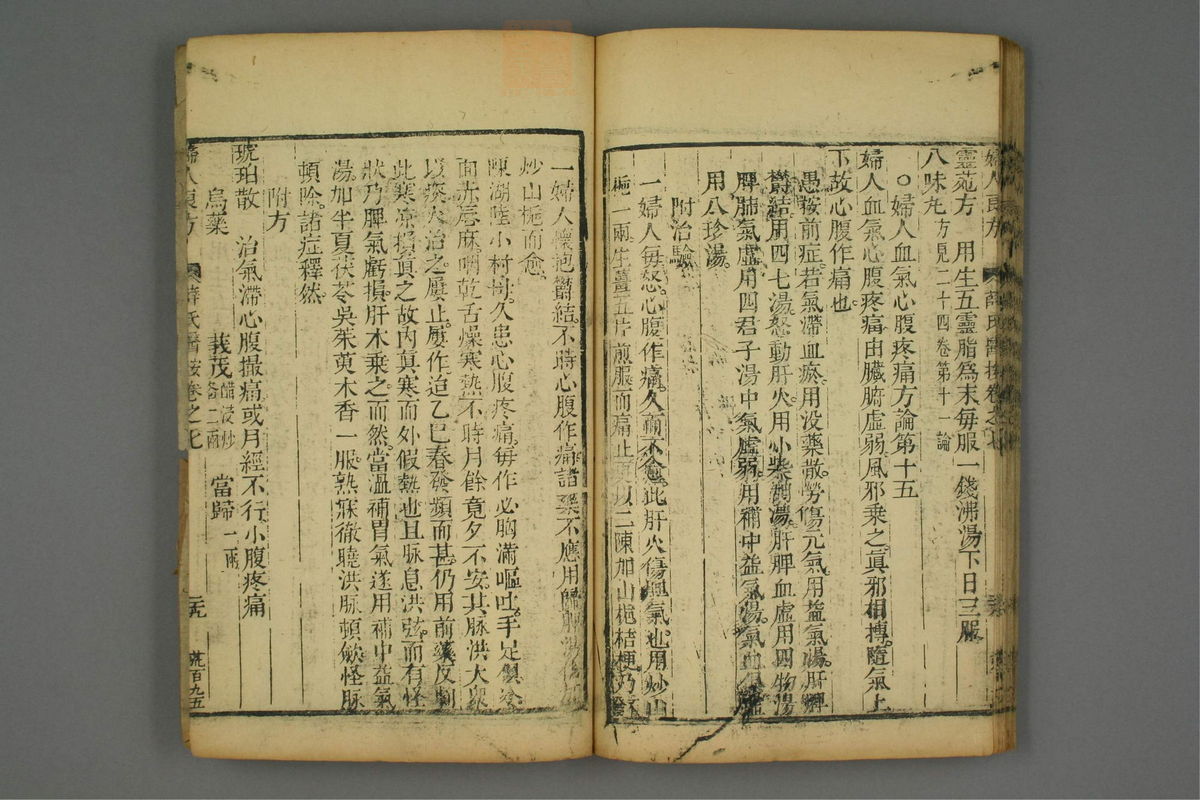 婦人良方 薛氏醫按卷之七
靈苑方 用生五靈脂爲末每服一錢沸湯下日三服
八味丸 方見二十四卷第十一論
○婦人血氣心腹疼痛方論第十五
婦人血氣心腹疼痛由臟腑虛弱風邪乘之眞邪相搏隨氣上
下故心腹作痛也
愚按前症若氣滯血瘀用没藥散勞傷元氣用益氣湯肝脾
鬱結用四七湯怒動肝火用小柴胡湯肝脾血虛用四物湯
脾肺氣虛用四君子湯中氣虛弱用補中益氣湯氣血俱虛
用八珍湯
附治驗
一婦人每怒心腹作痛久而不愈此肝火傷脾氣也用炒山
梔一兩生薑五片煎服而痛止更以二陳加山梔桔梗乃
一婦人懷抱鬱結不時心腹作痛諸藥不應用歸脾湯
炒山梔而愈
陳湖陸小村母久患心腹疼痛每作必胸滿嘔吐手足俱冷
面赤唇麻咽乾舌燥寒熱不時月餘竟夕不安其脉洪大衆
以痰火治之屢止屢作迨乙巳春發頻而甚仍用前藥反劇
此寒凉損眞之故内眞寒而外假熱也且脉息洪弦而有怪
狀乃脾氣虧損肝木乘之而然當温補胃氣遂用補中益氣
湯加半夏茯苓吳茱萸木香一服熟寐徹曉洪脉頓歛怪脉
頓除諸症釋然
附方
琥珀散 治氣滯心腹撮痛或月經不行小腹疼痛
烏藥 莪茂 醋浸炒各二兩 當歸 一兩
婦人良方 薛氏醫按卷之七 二十九 荒百九五